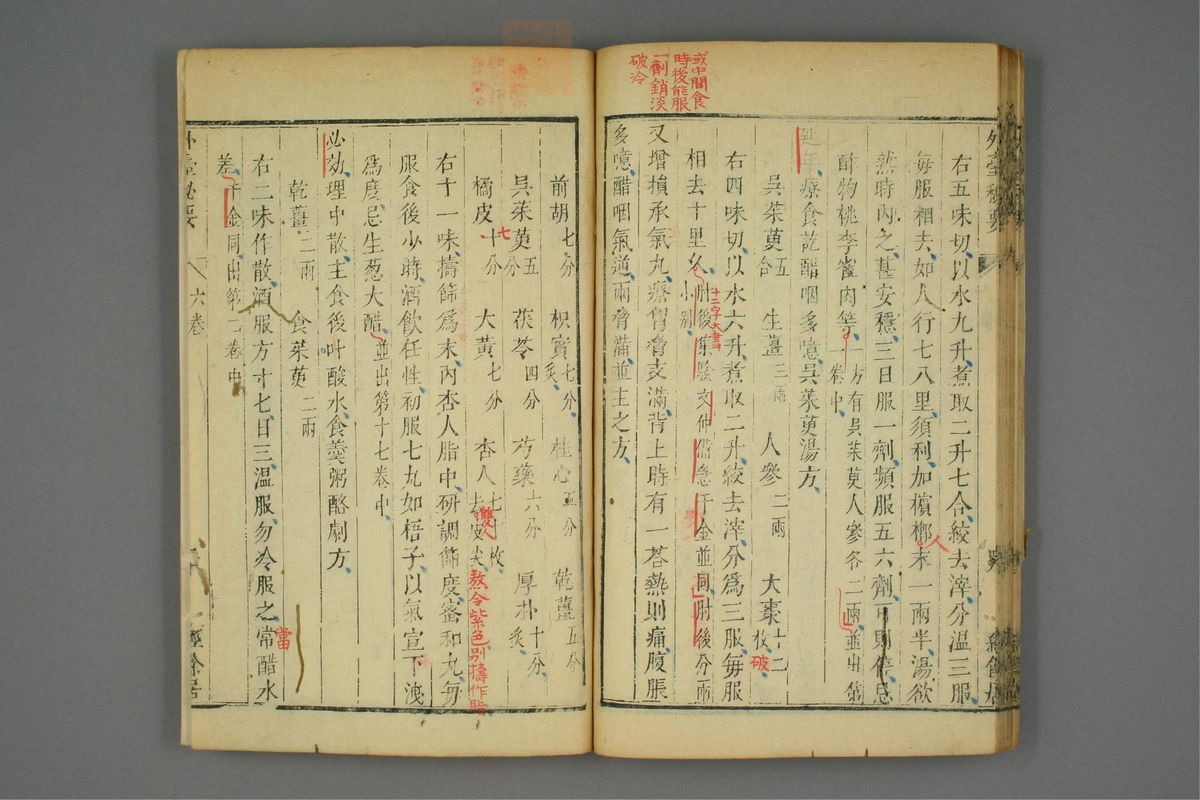 右五味切以水九升煮取二升七合絞去滓分溫三服
每服相去如人行七八里須利加檳榔末一兩半湯欲
熟時內之甚安穩三日服一劑頻服五六劑可則停忌
酢物桃李雀肉等一方有吳茱萸人參各二兩並出第
一卷中
延年療食訖醋咽多噫吳茱萸湯方
吳茱萸五合 生薑三兩 人參二兩 大棗十二枚 破
右四味切以水六升煮取二升絞去滓分為三服每服
相去十里久肘後集驗文仲備急千金並同肘後分兩
小別
十二字大書
或中間食
時後能服
一劑銷淡
破冷
人
又增損承氣丸療胷脅支滿背上時有一荅熱則痛腹脹
多噫醋咽氣逆兩脅滿並主之方
前胡七分 枳實七分炙 桂心五分 乾薑五分
吳茱萸五分 茯苓四分 芍藥六分 厚朴十分炙
橘皮十分 大黃七分 杏人七枚去皮尖
七
雙
熬令紫色別擣作脂
右十一味擣篩為末內杏人脂中研調篩度蜜和丸每
服食後少時酒飲任性初服七丸如梧子以氣宣下洩
為度忌生葱大醋並出第十七卷中
必効理中散主食後吐酸水食羹粥酪劇方
乾薑二兩 食茱萸二兩
右二味作散酒服方寸七日三溫服勿冷服之常醋水
當
差千金同出第一卷中
外臺祕要
六卷
經餘居